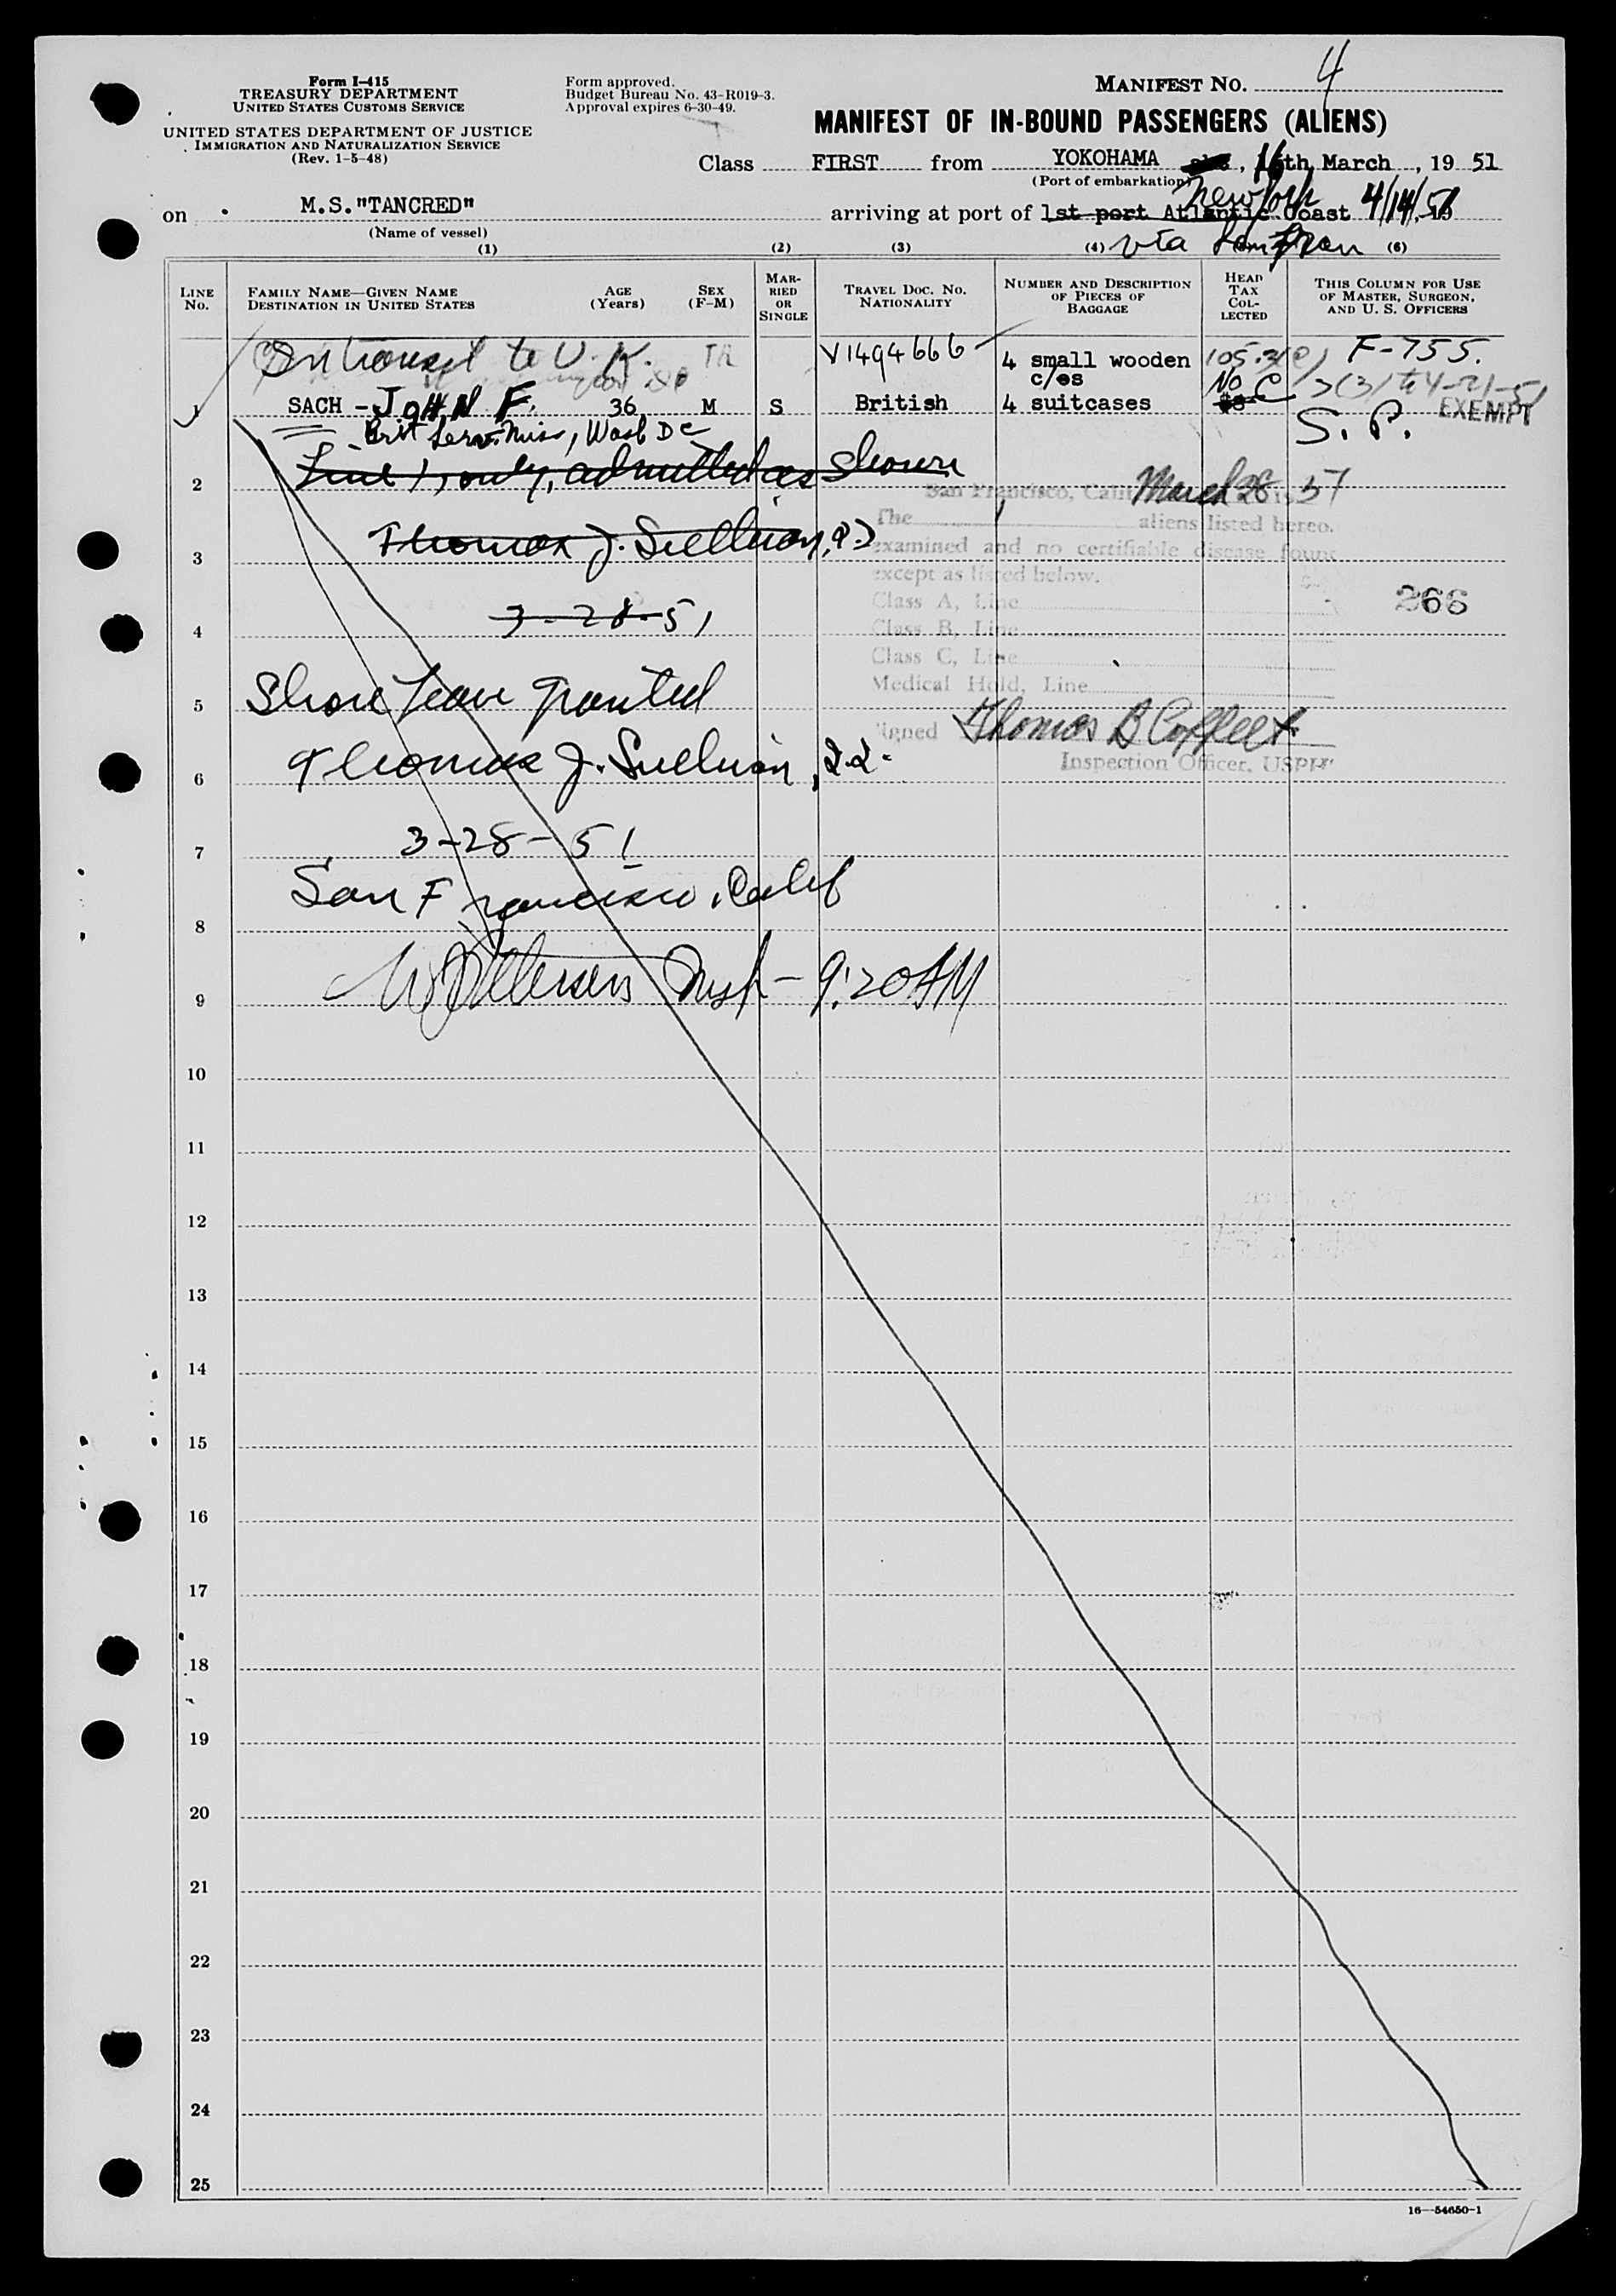 Form I-415
TREASURY DEPARTMENT
UNITED STATES CUSTOMS SERVICE
UNITED STATES DEPARTMENT OF JUSTICE
IMMIGRATION AND NATURALIZATION SERVICE
(Rev. 1-5-48)
Form approved.
Budget Bureau No. 43-R019-3.
Approval expires 6-30-49.
MANIFEST NO. 4
MANIFEST OF IN-BOUND PASSENGERS (ALIENS)
Class FIRST from YOKOHAMA, 16th March, 19 51
(Port of embarkation)
New York 4/14/51
on M.S."TANCRED" arriving at port of 1st port Atlantic Coast, 19
(Name of vessel)
via San Fran
(1) (2) (3) (4) (6)
LINE No.
FAMILY NAME—GIVEN NAME
DESTINATION IN UNITED STATES
AGE (Years)
SEX (F-M)
MARRIED OR SINGLE
TRAVEL DOC. No.
NATIONALITY
NUMBER AND DESCRIPTION OF PIECES OF BAGGAGE
HEAD TAX COLLECTED
THIS COLUMN FOR USE OF MASTER, SURGEON, AND U. S. OFFICERS
In transit to U.K. TR V1494666 4 small wooden c/es 105.3(e) F-755.
No C (3) to 4-21-51
1 SACH - JOHN F. 36 M S British 4 suitcases $8 EXEMPT
S. P.
Brit Serv. Miss, Wash DC
2 Line 1, only, admitted as shown
San Francisco, Calif March 28 19 51
The 1 aliens listed hereo.
3 Thomas J. Sullivan,
examined and no certifiable disease foun
except as listed below.
Class A, Line
266
4 3-28-51
Class B, Line
Class C, Line
Medical Hold, Line
5 Shore leave granted
Signed Thomas B Coffelt
6 Thomas J. Sullivan,
Inspection Officer, USPH
7 3-28-51
8 San Francisco, Calif
9 Insp - 9:20 AM
10
11
12
13
14
15
16
17
18
19
20
21
22
23
24
25
16—54650-1